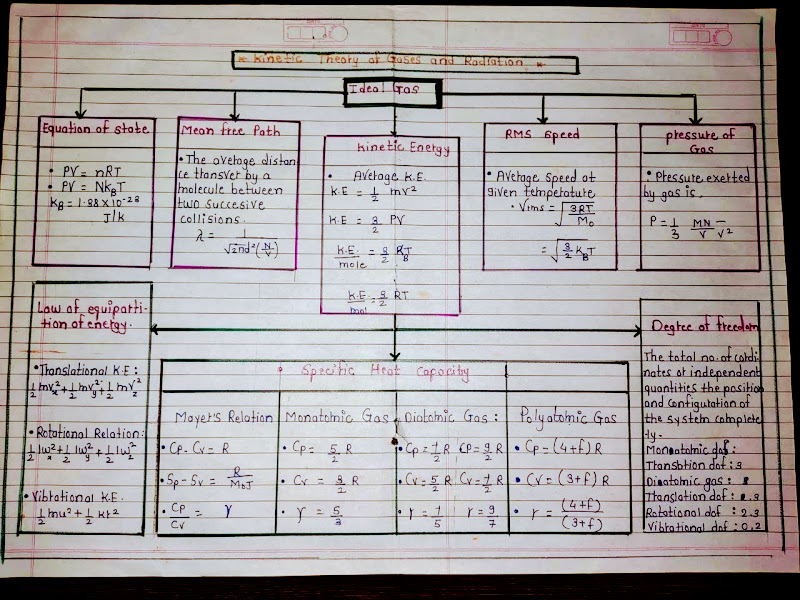 * Kinetic Theory of Gases and Radiation *
Ideal Gas
Equation of state
• PV = nRT
• PV = NkBT
kB = 1.38 × 10-23
J/k
Mean free Path
• The average distan
ce transver by a
molecule between
two succesive
collisions.
λ = 1/√2πd²(N/V)
Kinetic Energy
• Average K.E.
K.E = 1/2 mv²
K.E = 3/2 PV
K.E./mole = 3/2 RT
B
K.E/mol = 3/2 RT
RMS Speed
• Average speed at
given temperature
• Vrms = √3RT/M0
= √3/2 KBT
pressure of
Gas
• Pressure exerted
by gas is,
P = 1/3 MN/V v²
Law of equiparti-
tion of energy.
• Translational K.E:
1/2 mvx² + 1/2 mvy² + 1/2 mvz²
• Rotational Relation:
1/2 Iwx² + 1/2 Iwy² + 1/2 Iwz²
• Vibrational K.E.
1/2 mu² + 1/2 kr²
• Specific Heat Capacity
Mayer's Relation
• Cp - Cv = R
• Sp - Sv = R/M0J
• Cp/Cv = γ
Monatomic Gas
• Cp = 5/2 R
• Cv = 3/2 R
• γ = 5/3
Diatomic Gas:
• Cp = 7/2 R Cp = 9/2 R
• Cv = 5/2 R Cv = 7/2 R
• γ = 7/5 γ = 9/7
Polyatomic Gas
• Cp = (4+f) R
• Cv = (3+f) R
• γ = (4+f)/(3+f)
Degree of freedom
The total no. of cordi
nates or independent
quantities the position
and configuration of
the system complete
ly.
Monoatomic dof:
Transbtion dof : 3
Diatomic gas :
Translation dof : 3
Rotational dof : 2,3
Vibrational dof : 0,2